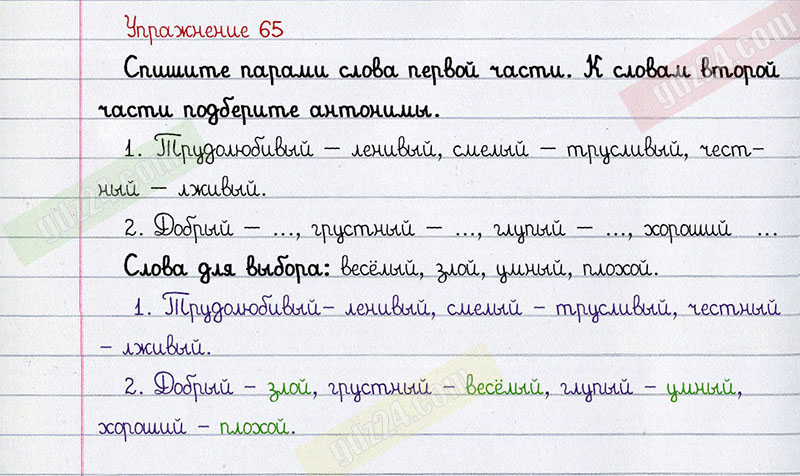 Упражнение 65
Спишите парами слова первой части. К словам второй
части подберите антонимы.
1. Трудолюбивый – ленивый, смелый – трусливый, чест-
ный – лживый.
2. Добрый – ..., грустный – ..., глупый – ..., хороший ...
Слова для выбора: весёлый, злой, умный, плохой.
1. Трудолюбивый– ленивый, смелый – трусливый, честный
– лживый.
2. Добрый – злой, грустный – весёлый, глупый – умный,
хороший – плохой.
gdz24.com
gdz24.com
gdz24.com